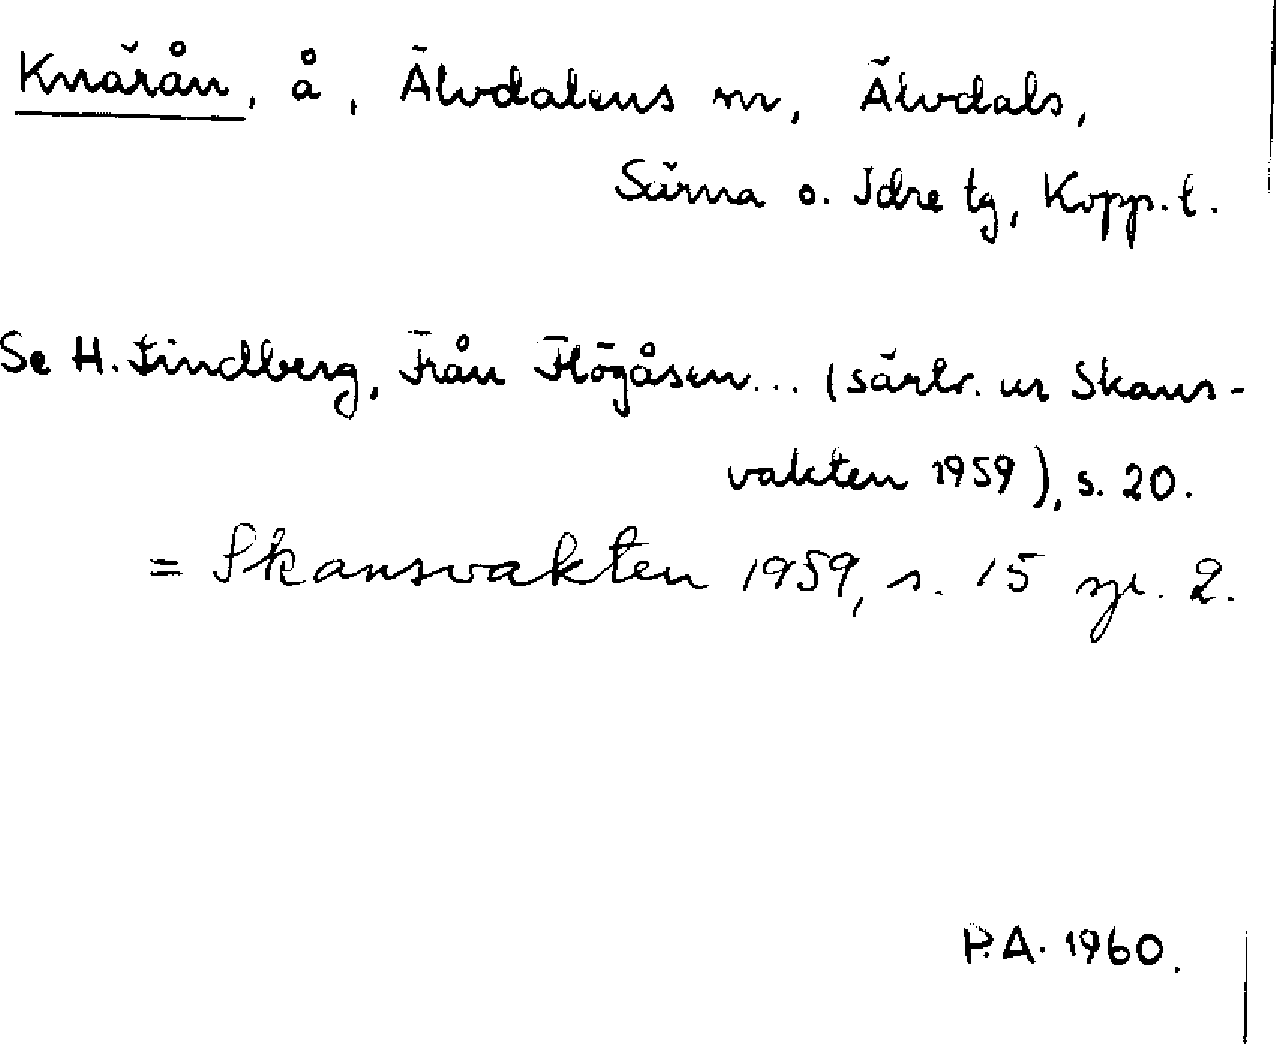 Knärån, å, Älvdalens sn, Älvdals,
Särna o. Idre tg, Kopp. l.
Se H. Lindberg, Från Flögåsen... (särtr. ur Skans-
vakten 1959), s. 20.
= Skansvakten 1959, s. 15 sp. 2.
P.A. 1960.